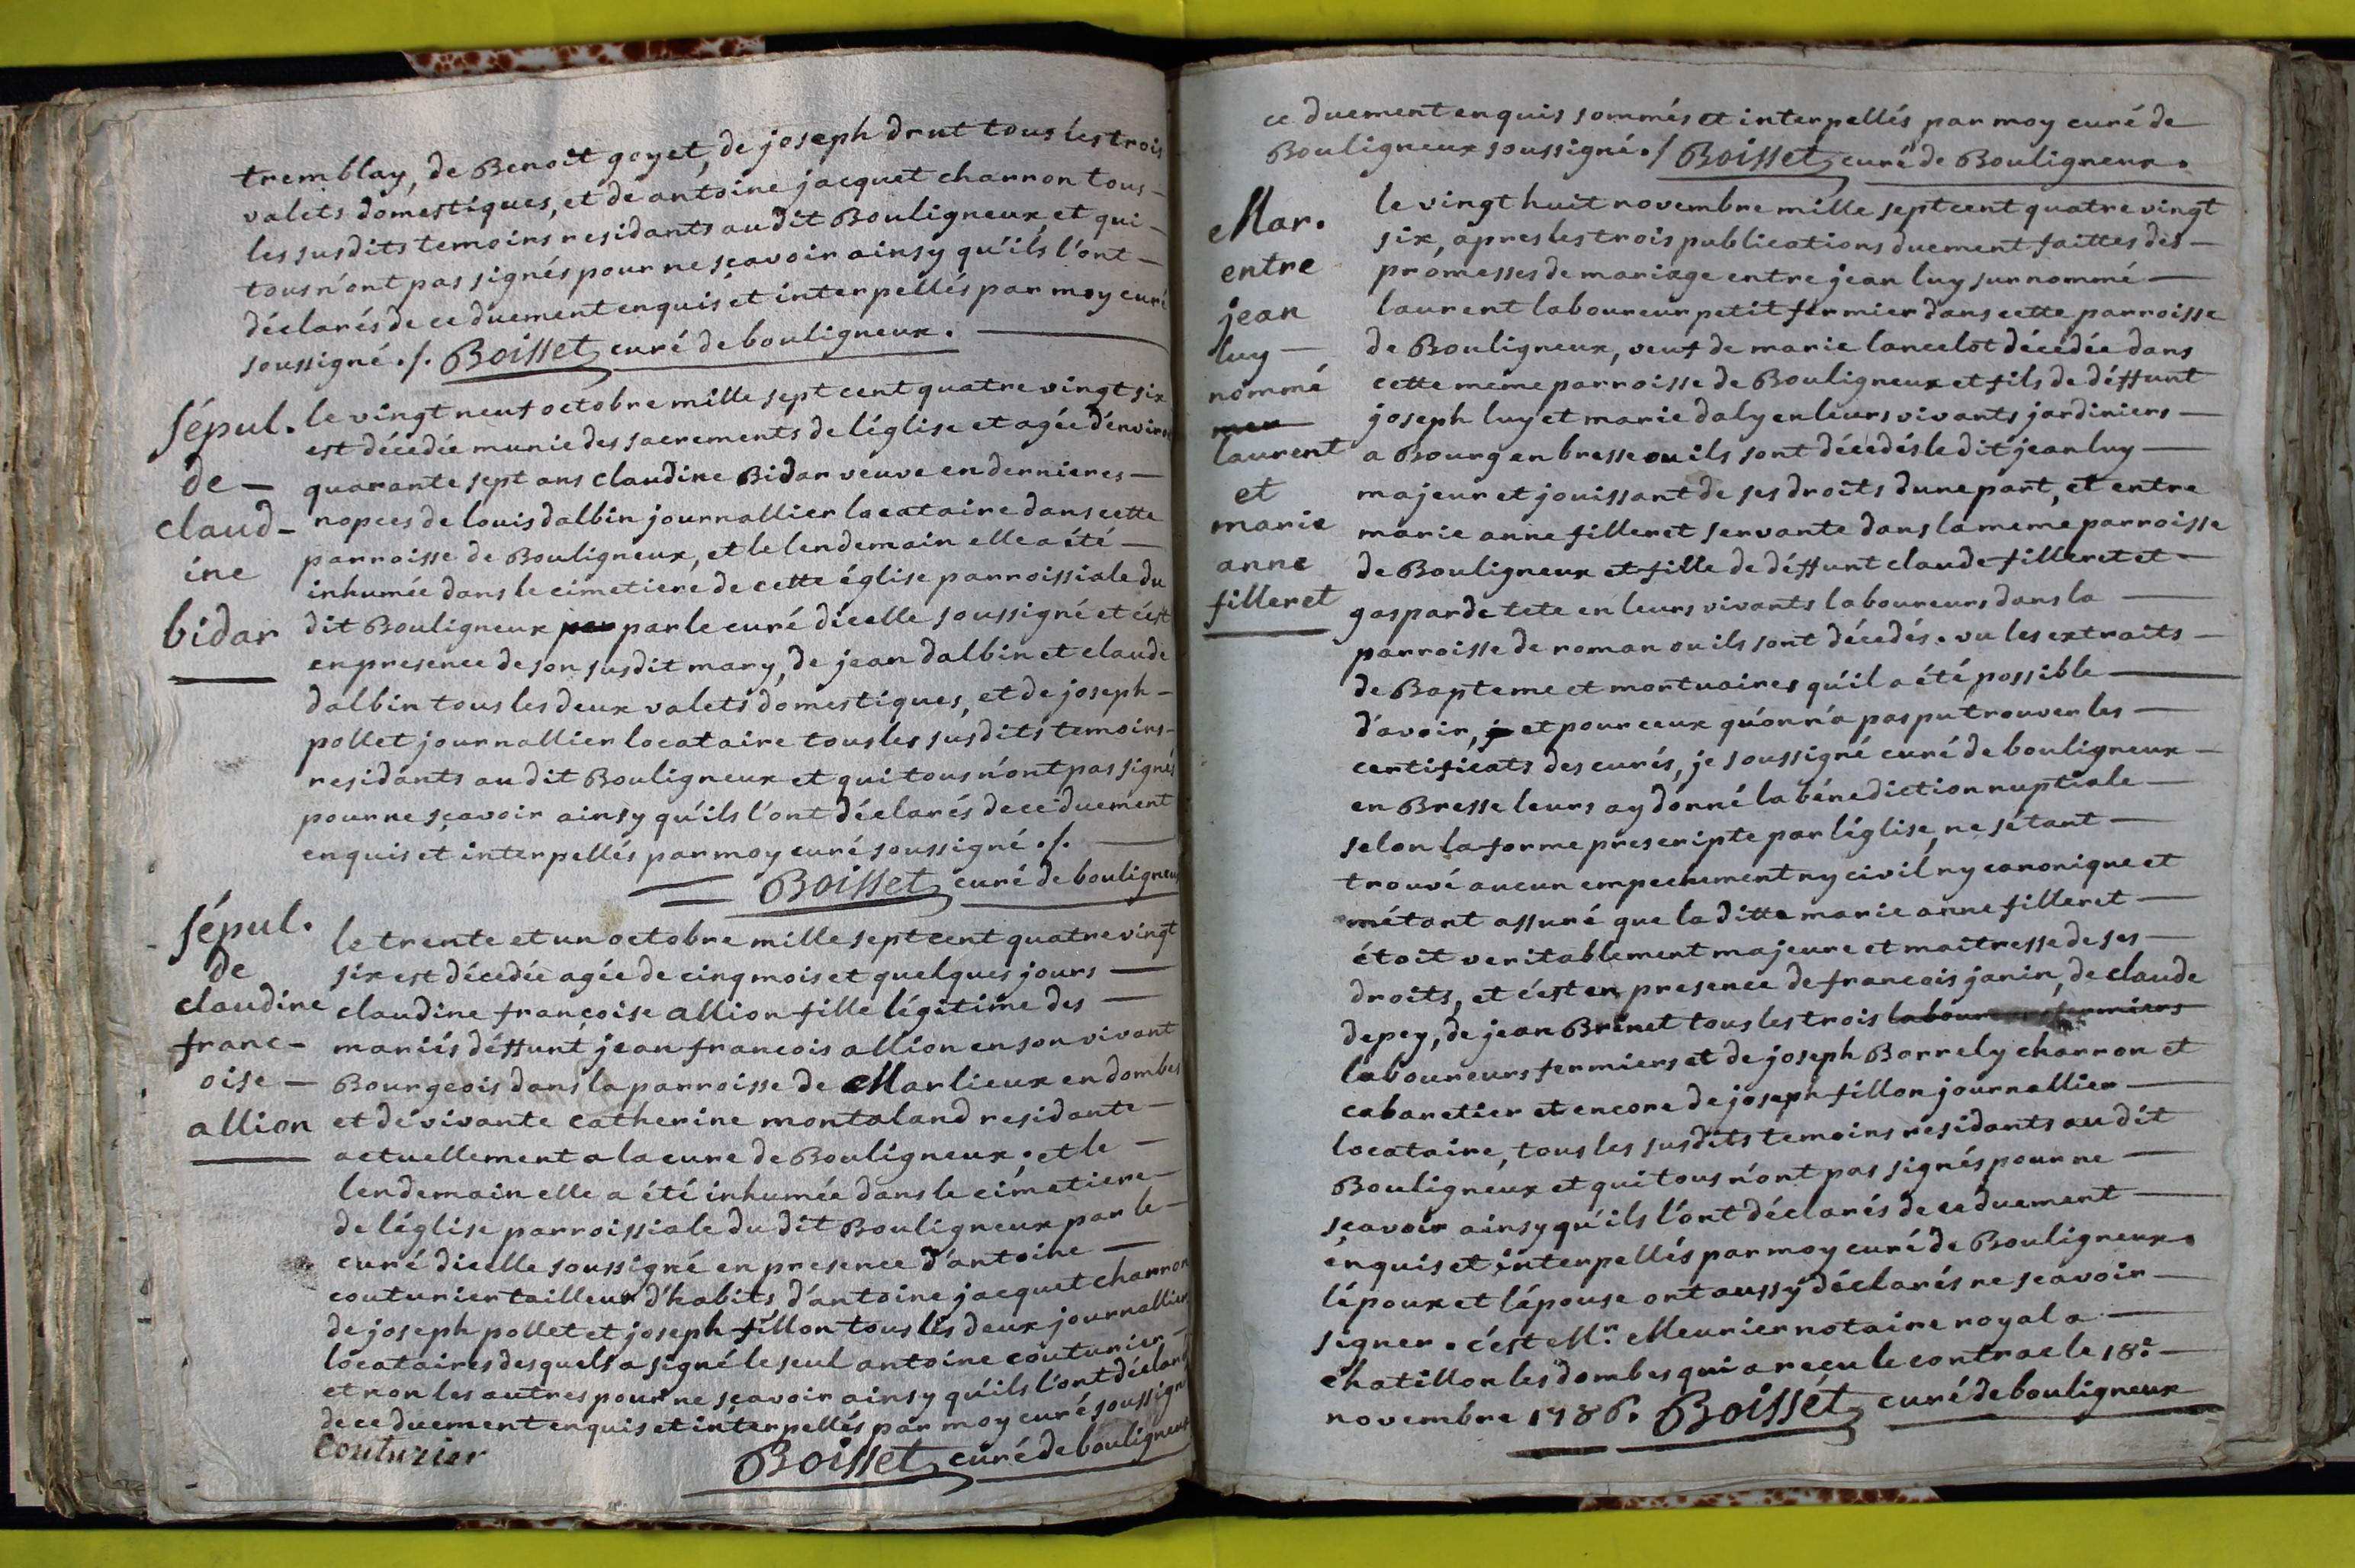 tremblay, de Benoit goyet, de joseph drut tous les trois
valets domestiques, et de antoine jacquet charron tous
les susdits temoins residants au dit Bouligneux, et qui
tous n'ont pas signés pour ne sçavoir ainsy qu'ils l'ont
déclarés de ce duement enquis et interpellés par moy curé
soussigné ./. Boisset curé de bouligneux.
Sépul.
de
claud-
ine
bidar
le vingt neuf octobre mille sept cent quatre vingt six
est décédée munie des sacrements de léglise et agée d'environ
quarante sept ans Claudine Bidar veuve en dernieres
nopces de louis dalbin journallier locataire dans cette
parroisse de Bouligneux, et le lendemain elle a été
inhumée dans le cimetiere de cette église parroissiale du
dit Bouligneux par le curé dicelle soussigné et c'est
en presence de son susdit mary, de jean dalbin et claude
dalbin tous les deux valets domestiques, et de joseph
pollet journallier locataire tous les susdits temoins
residants au dit Bouligneux et qui tous n'ont pas signés
pour ne sçavoir ainsy qu'ils l'ont déclarés de ce duement
enquis et interpellés par moy curé soussigné ./.
Boisset curé de bouligneux
Sépul.
de
claudine
franc-
oise
allion
le trente et un octobre mille sept cent quatre vingt
six est décedée agée de cinq mois et quelques jours
claudine françoise allion fille légitime des
mariés déffunt jean francois allion en son vivant
Bourgeois dans la parroisse de Marlieux en dombes
et de vivante Catherine montaland residante
actuellement a la cure de Bouligneux; et le
lendemain elle a été inhumée dans le cimetiere
de léglise parroissiale du dit Bouligneux par le
curé dicelle soussigné en presence d'antoine
couturier tailleur d'habits, d'antoine jacquet charron
de joseph pollet et joseph fillon tous les deux journalliers
locataires desquels a signé le seul antoine couturier
et non les autres pour ne sçavoir ainsy qu'ils l'ont déclaré
de ce duement enquis et interpellés par moy curé soussigné
Couturier Boisset curé de bouligneux
ce duement enquis sommés et interpellés par moy curé de
Bouligneux soussigné ./ Boisset curé de Bouligneux.
Mar.
entre
jean
luy
nommé
laurent
et
marie
anne
filleret
le vingt huit novembre mille sept cent quatre vingt
six, apres les trois publications duement faittes des
promesses de mariage entre jean luy surnommé
laurent laboureur petit fermier dans cette parroisse
de Bouligneux, veuf de marie lancelot décédée dans
cette meme parroisse de Bouligneux et fils de déffunt
joseph luy et marie daly en leurs vivants jardiniers
a Bourg en bresse ou ils sont décedés le dit jean luy
majeur et jouissant de ses droits dune part, et entre
marie anne filleret servante dans la meme parroisse
de Bouligneux et fille de déffunt claude filleret et
gasparde tete en leurs vivants laboureurs dans la
parroisse de roman ou ils sont décedés. vu les extraits
de Bapteme et mortuaires qu'il a été possible
d'avoir, et pour ceux qu'on n'a pas pu trouver les
certificats des curés, je soussigné curé de bouligneux
en Bresse leurs ay donné la bénediction nuptiale
selon la forme prescripte par léglise, ne sétant
trouvé aucun empechement ny civil ny canonique et
m'étant assuré que la ditte marie anne filleret
étoit veritablement majeure et maitresse de ses
droits, et c'est en presence de francois janin, de claude
depey, de jean Brinet tous les trois laboureurs fermiers
laboureurs fermiers et de joseph Borrely charron et
cabaretier et encore de joseph fillon journallier
locataire, tous les susdits temoins residants au dit
Bouligneux et qui tous n'ont pas signés pour ne
sçavoir ainsy qu'ils l'ont déclarés de ce duement
enquis et interpellés par moy curé de Bouligneux.
lépoux et lépouse ont aussy déclarés ne sçavoir
signer. c'est Mr. Meurier notaire royal a
chatillon les dombes qui a reçu le contrac le 18e.
novembre 1786. Boisset curé de bouligneux